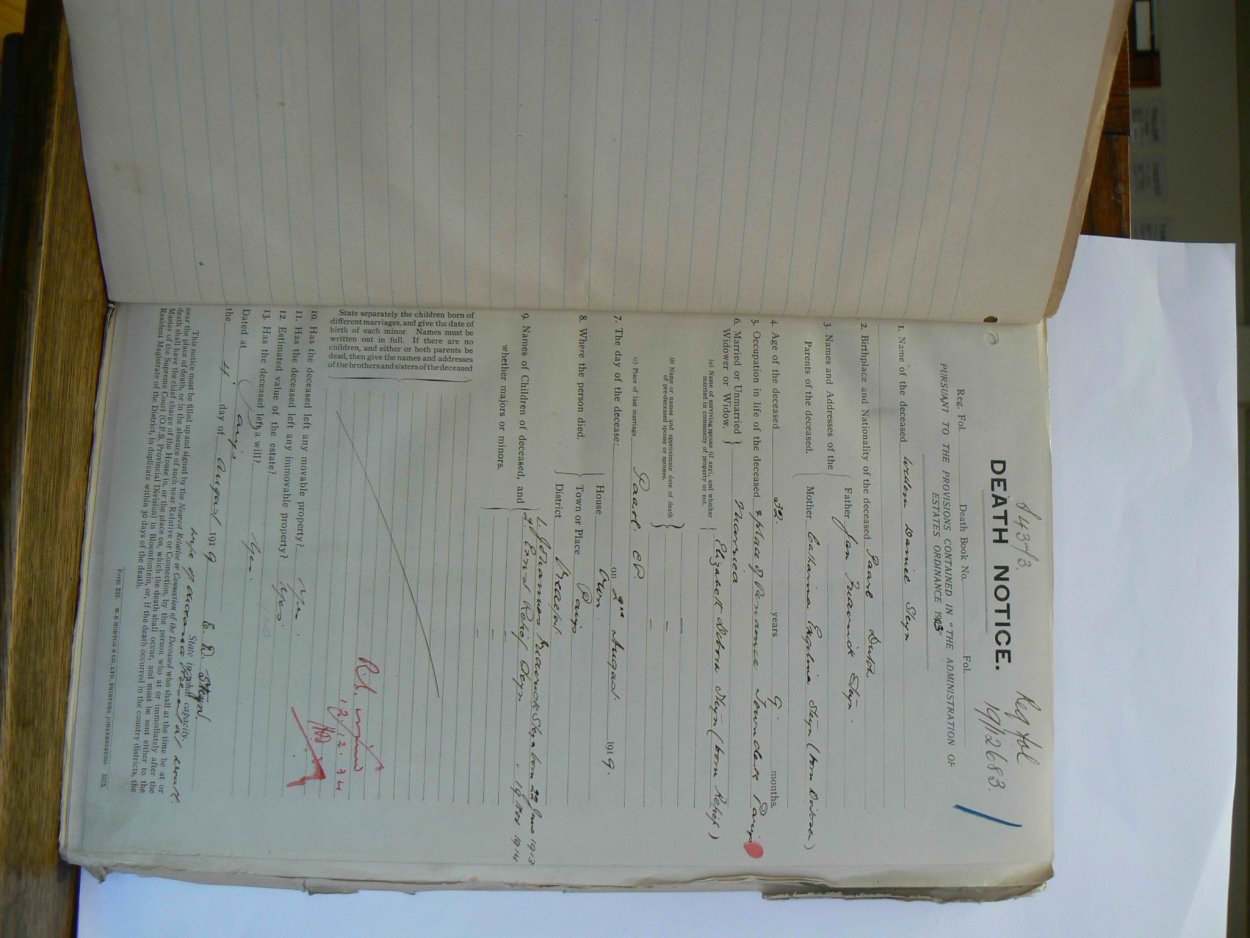 Reg fol
19/12683.
DEATH NOTICE.
Reg. Fol. Death Book No. Fol.
PURSUANT TO THE PROVISIONS CONTAINED IN "THE ADMINISTRATION OF
ESTATES ORDINANCE 1913"
1. Name of the deceased Willem Daniel Steyn
2. Birthplace and Nationality of the deceased Paarl Dutch
3. Names and Addresses of the Parents of the deceased. Father Jan Steyn
Mother Steyn (born )
4. Age of the deceased 32 years 9 months.
5. Occupation in life of the deceased & place of Town Clerk Parys
6. Married or Unmarried Widower or Widow. Married
(a) Name of surviving spouse (if any), and whether married in community of property or not. Elizabeth Debora Steyn (born Retief)
(b) Name or names and approximate date of death of pre-deceased spouse or spouses. —
(c) Place of last marriage. Paarl CP
7. The day of the decease: on 2nd August 1919.
8. Where the person died. House
Town or Place Parys
District
9. Names of Children of deceased, and whether majors or minors. 1. Johannes Steyn born 22 June 1913
2. Retief Steyn 1914
State separately the children born of
different marriages, and give the date of
birth of each minor. Names must be
written out in full. If there are no
children, and either or both parents be
dead, then give the names and addresses
of the brothers and sisters of the deceased
12/12.34
10. Has the deceased left any movable property? Yes.
11. Has the deceased left any immovable property? Yes
12 Estimated value of the estate?
13. Has the deceased left a will? Yes
Dated at Parys
the 4 day of August 1919
E. D. Steyn.
State in what capacity.
This notice must be filled up and signed by the Nearest Relative or Connection of the Deceased who shall at the time be at or
near the place of death, or in the absence of such near Relative or Connection, by the person who at or immediately after the
death shall have the chief charge of the House in, or the place on, which the death shall occur, and must be sent either to the
Master of the Supreme Court (O.F.S. Provincial Division) in Bloemfontein, or, if the death occurred in the country districts, the
Resident Magistrate of the District, in duplicate within 30 days of the death.
W. E. HORTOR & CO., LTD., PRINTERS, JOHANNESBURG